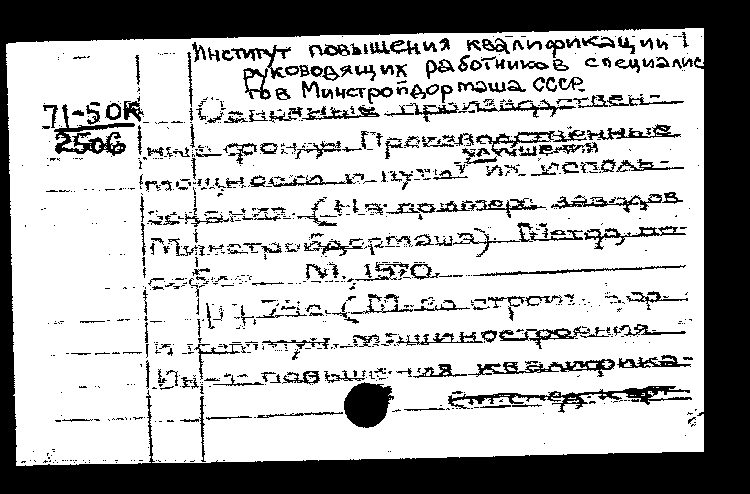 Институт повышения квалификации
руководящих работников специалис
тов Минстройдормаша СССР
71-50К
2506
Основные производствен-
ные фонды. Производственные
мощности и пути улучшения их исполь-
зования. (На примере заводов
Минстройдормаша). Метод. по-
собие. М., 1970.
74с (М-во строит., дор.
и коммун. машиностроения.
Ин-т повышения квалифика-